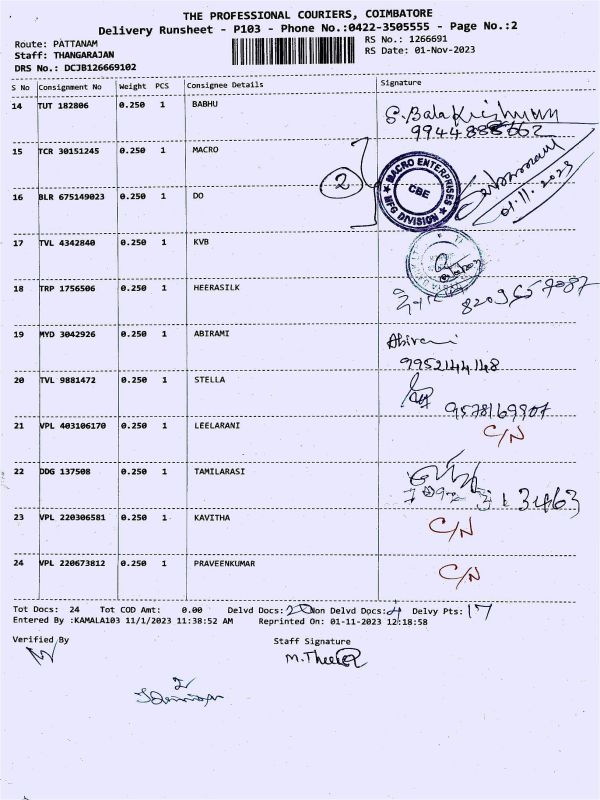 THE PROFESSIONAL COURIERS, COIMBATORE
Delivery Runsheet - P103 - Phone No.:0422-3505555 - Page No.:2
Route: PATTANAM
RS No.: 1266691
Staff: THANGARAJAN
RS Date: 01-Nov-2023
DRS No.: DCJB126669102
S No Consignment No Weight PCS Consignee Details Signature
14 TUT 182806 0.250 1 BABHU
15 TCR 30151245 0.250 1 MACRO
16 BLR 675149023 0.250 1 DO
2
MACRO ENTERPRISES
CBE
MFG DIVISION
01.11.2023
17 TVL 4342840 0.250 1 KVB
18 TRP 1756506 0.250 1 HEERASILK
19 MYD 3042926 0.250 1 ABIRAMI Abirami
9952144148
20 TVL 9881472 0.250 1 STELLA
9578169907
21 VPL 403106170 0.250 1 LEELARANI C/N
22 DDG 137508 0.250 1 TAMILARASI
23 VPL 220306581 0.250 1 KAVITHA C/N
24 VPL 220673812 0.250 1 PRAVEENKUMAR C/N
Tot Docs: 24 Tot COD Amt: 0.00 Delvd Docs: 20 Non Delvd Docs: 4 Delvy Pts: 17
Entered By :KAMALA103 11/1/2023 11:38:52 AM Reprinted On: 01-11-2023 12:18:58
Verified By Staff Signature